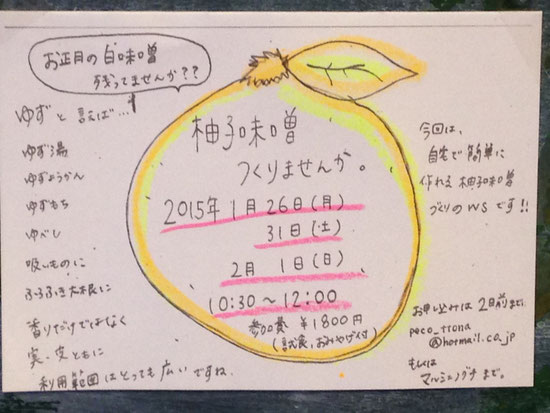 お正月の白味噌
残ってませんか??
ゆずと言えば…
ゆず湯
ゆずようかん
ゆずもち
ゆべし
吸いものに
ふろふき大根に
香りだけではなく
実・皮ともに
利用範囲はとっても広いですね。
柚子味噌
つくりませんか。
2015年 1月26日(月)
31日(土)
2月 1日(日)
10:30〜12:00
参加費 ¥1800円
(試食、おみやげ付)
今回は、
自宅で簡単に
作れる柚子味噌
づくりのWSです!!
お申し込みは2日前まで。
peco_ttona
@hotmail.co.jp
もしくは
マルシェノグチまで。